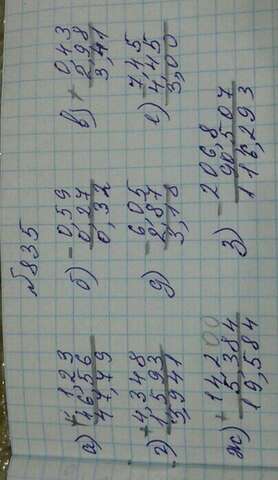 №835
а) + 1,23
46,56
47,79
б) - 0,59
0,27
0,32
в) + 0,43
2,98
3,41
г) + 2,348
1,593
3,941
д) - 6,05
2,87
3,18
е) - 7,45
4,45
3,00
ж) + 14,200
5,384
19,584
з) - 206,8
90,507
116,293